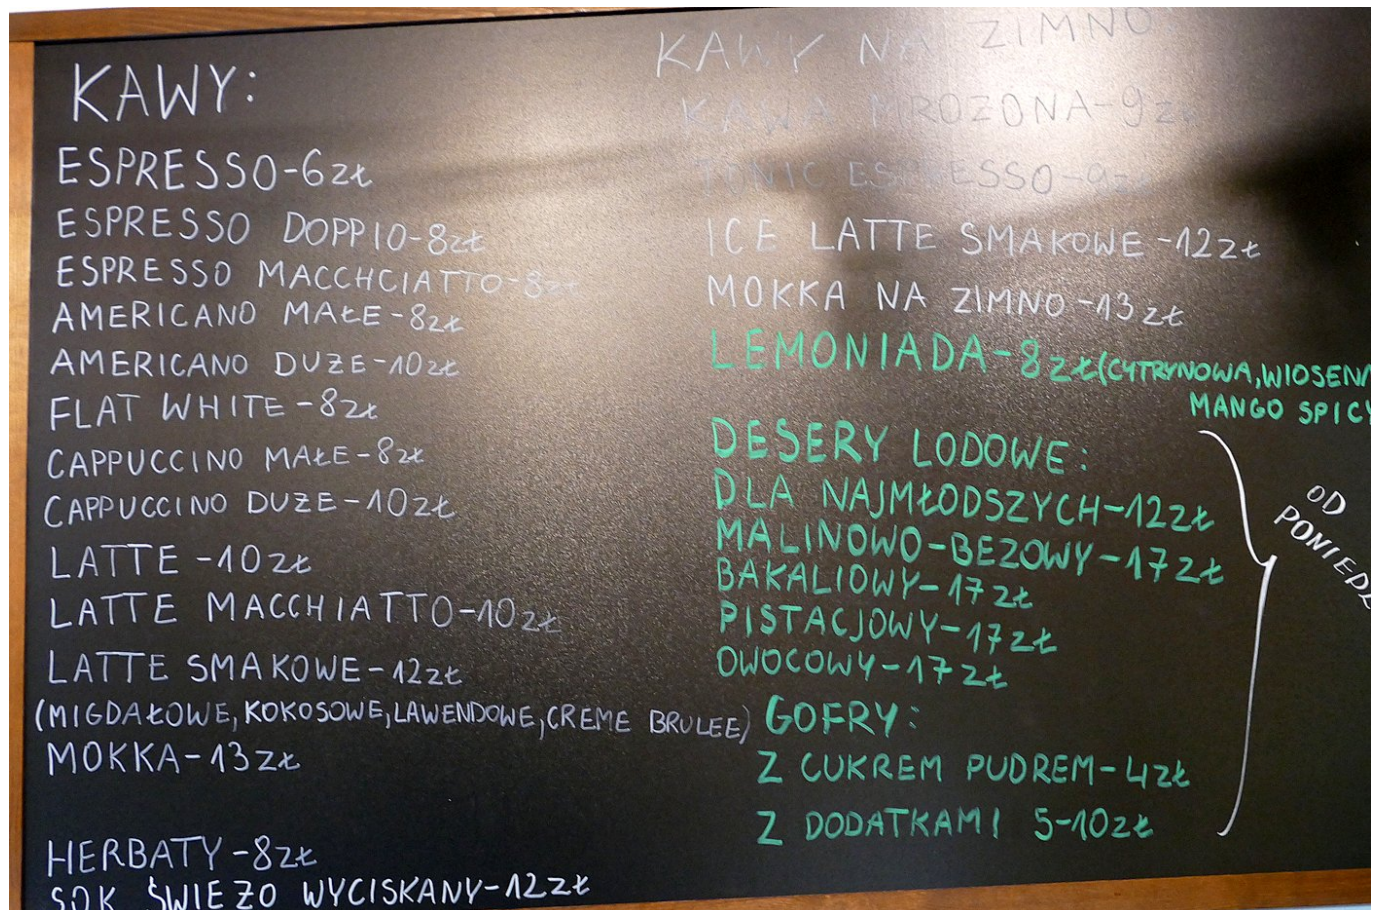 KAWY:
ESPRESSO-6zł
ESPRESSO DOPPIO-8zł
ESPRESSO MACCHCIATTO-8zł
AMERICANO MAŁE-8zł
AMERICANO DUŻE-10zł
FLAT WHITE-8zł
CAPPUCCINO MAŁE-8zł
CAPPUCCINO DUŻE-10zł
LATTE-10zł
LATTE MACCHIATTO-10zł
LATTE SMAKOWE-12zł
(MIGDAŁOWE, KOKOSOWE, LAWENDOWE, CREME BRULEE)
MOKKA-13zł
HERBATY-8zł
SOK ŚWIEŻO WYCISKANY-12zł
KAWY NA ZIMNO
KAWA MROZONA-9zł
TONIC ESPRESSO-9zł
ICE LATTE SMAKOWE-12zł
MOKKA NA ZIMNO-13zł
LEMONIADA-8zł (CYTRYNOWA, WIOSENN
MANGO SPICY
DESERY LODOWE:
DLA NAJMŁODSZYCH-12zł
MALINOWO-BEZOWY-17zł
BAKALIOWY-17zł
PISTACJOWY-17zł
OWOCOWY-17zł
GOFRY:
Z CUKREM PUDREM-4zł
Z DODATKAMI 5-10zł
OD
PONIEDZ